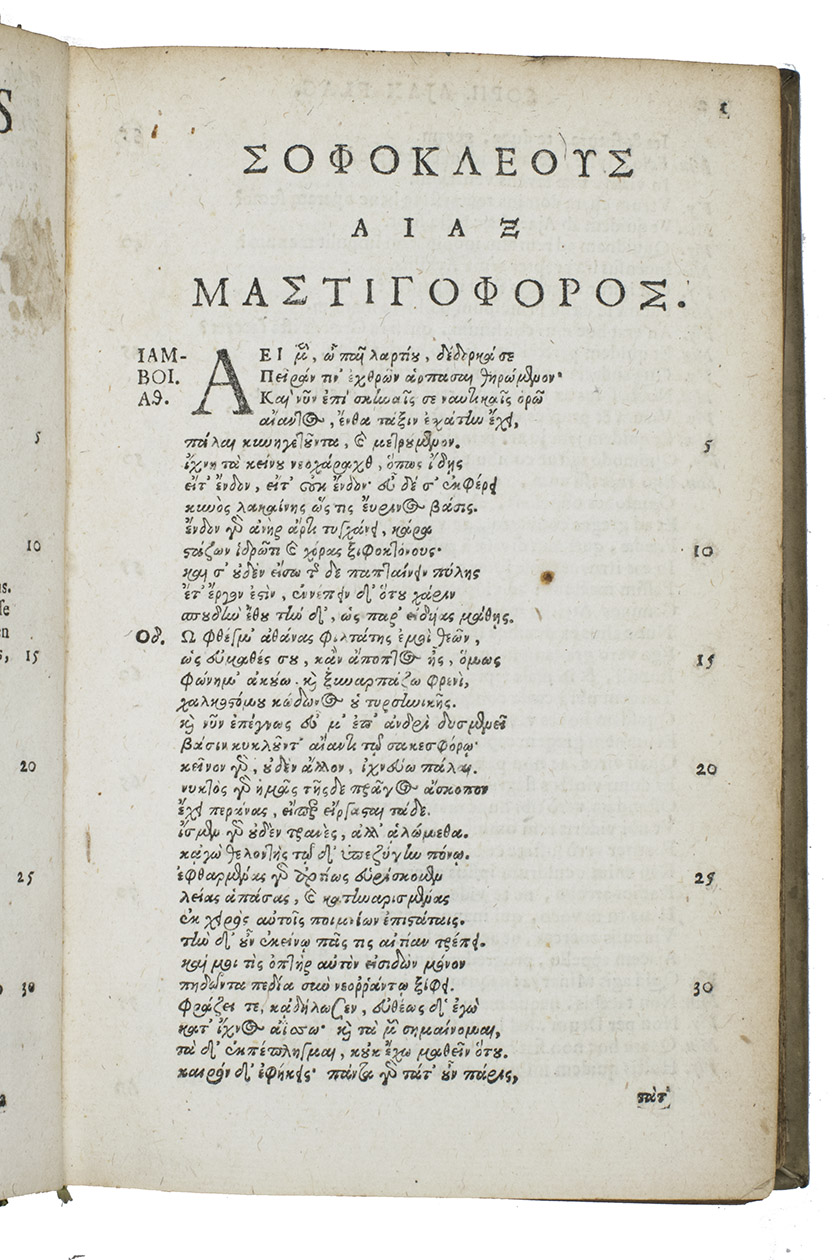 1
ΣΟΦΟΚΛΕΟΥΣ
ΑΙΑΞ
ΜΑΣΤΙΓΟΦΟΡΟΣ.
ΙΑΜ-
ΒΟΙ.
Αθ.
ΑΕΙ μὲν, ὦ παῖ λαρτίου, δέδορκά σε
Πεῖράν τιν' ἐχθρῶν ἁρπάσαι θηρώμενον·
Καὶ νῦν ἐπὶ σκηναῖς σε ναυτικαῖς ὁρῶ
αἴαντος, ἔνθα τάξιν ἐχάτην ἔχει,
πάλαι κυνηγετοῦντα, καὶ μετρούμενον. 5
ἴχνη τὰ κείνου νεοχάραχθ', ὅπως ἴδῃς
εἴτ' ἔνδον, εἴτ' οὐκ ἔνδον· εὖ δέ σ' ἐκφέρει
κυνὸς λακαίνης ὥς τις εὔρινος βάσις.
ἔνδον γὰρ ἀνὴρ ἄρτι τυγχάνει, κάρα
στάζων ἱδρῶτι καὶ χέρας ξιφοκτόνους· 10
καί σ' οὐδὲν εἴσω τῆσδε παπταίνειν πύλης
ἔτ' ἔργον ἐστὶν, ἐννέπειν δ' ὅτου χάριν
σπουδὴν ἔθου τὴν δ', ὡς παρ' εἰδυίας μάθῃς.
Οδ. Ω φθέγμ' ἀθάνας φιλτάτης ἐμοὶ θεῶν,
ὡς εὐμαθές σου, κἂν ἄποπτος ᾖς, ὅμως 15
φώνημ' ἀκούω. καὶ ξυναρπάζω φρενὶ,
χαλκοστόμου κώδωνος ὡς τυρσηνικῆς.
καὶ νῦν ἐπέγνως εὖ μ' ἐπ' ἀνδρὶ δυσμενεῖ
βάσιν κυκλοῦντ' αἴαντι τῷ σακεσφόρῳ·
κεῖνον γὰρ, οὐδὲν ἄλλον, ἰχνεύω πάλαι. 20
νυκτὸς γὰρ ἡμᾶς τῆσδε πρᾶγος ἄσκοπον
ἔχει περάνας, εἴπερ εἴργασται τάδε.
ἴσμεν γὰρ οὐδὲν τρανὲς, ἀλλ' ἀλώμεθα.
κἀγὼ θελοντὴς τῷ δ' ὑπεζύγην πόνῳ.
ἐφθαρμένας γὰρ ἀρτίως εὑρίσκομεν 25
λείας ἁπάσας, καὶ κατηναρισμένας
ἐκ χειρὸς αὐτοῖς ποιμνίων ἐπιστάταις.
τὴν δ' οὖν ἐκείνῳ πᾶς τις αἰτίαν τρέπει.
καί μοι τὶς ὀπτὴρ αὐτὸν εἰσιδὼν μόνον
πηδῶντα πεδία σὺν νεορράντῳ ξίφει. 30
φράζει τε, κἀδήλωσεν, εὐθέως δ' ἐγὼ
κατ' ἴχνος ἀΐσσω· καὶ τὰ μὲν σημαίνομαι,
τὰ δ' ἐκπέπληγμαι, κοὐκ ἔχω μαθεῖν ὅτου.
καιρὸν δ' ἐφήκεις· πάντα γὰρ τάτ' οὖν πάρος,
τάτ'